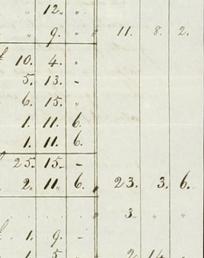 " 12. "
" 9. " 11. 8. 2.
10. 4. "
5. 13. -
6. 15. "
1. 11. 6.
1. 11. 6.
25. 15. -
2. 11. 6. 23. 3. 6.
3. " "
1. 9. -
1. 5 " 2. 14.